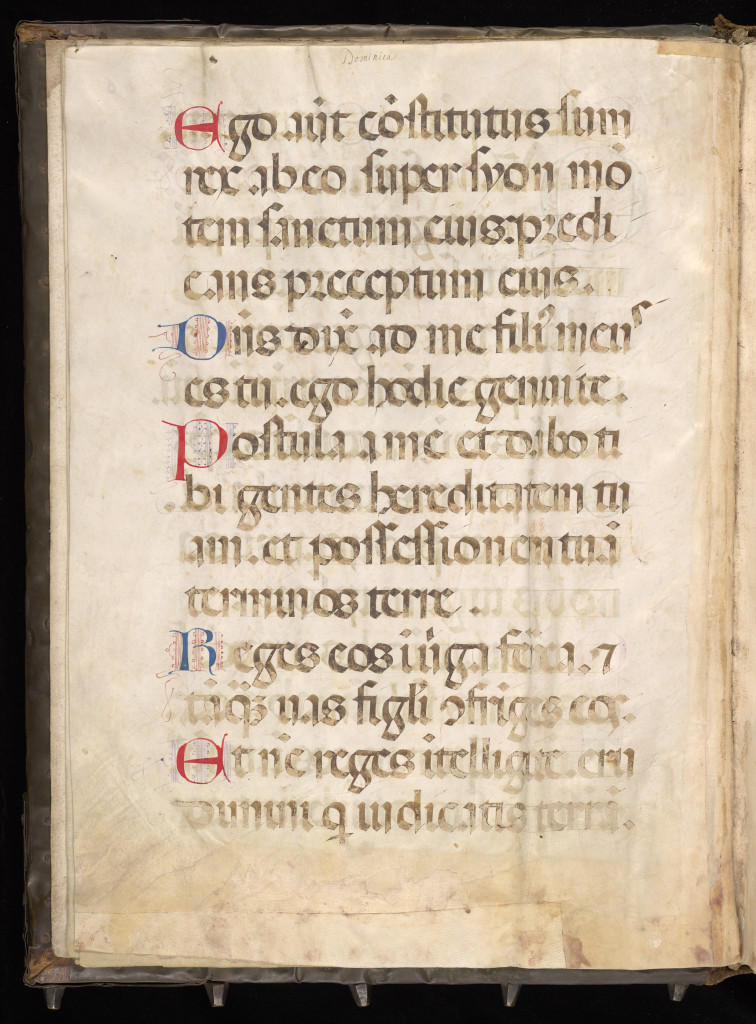 Dominica
Ego aūt cōstitutus sum
rex ab eo super syon mō
tem sanctum eius: predi
cans preceptum eius.
Dn̄s dix̄ ad me filiꝰ meuˢ
es tu. ego hodie genui te.
Postula a me et dabo ti
bi gentes hereditatem tu
am. et possessionem tuā
terminos terre.
Reges eos ī uīga ferrea. ⁊
taq̄ꝫ uas figli ꝯfriges eos.
Et nc̄ reges itelligite. eru
dimini q̄ iudicatis terrā.